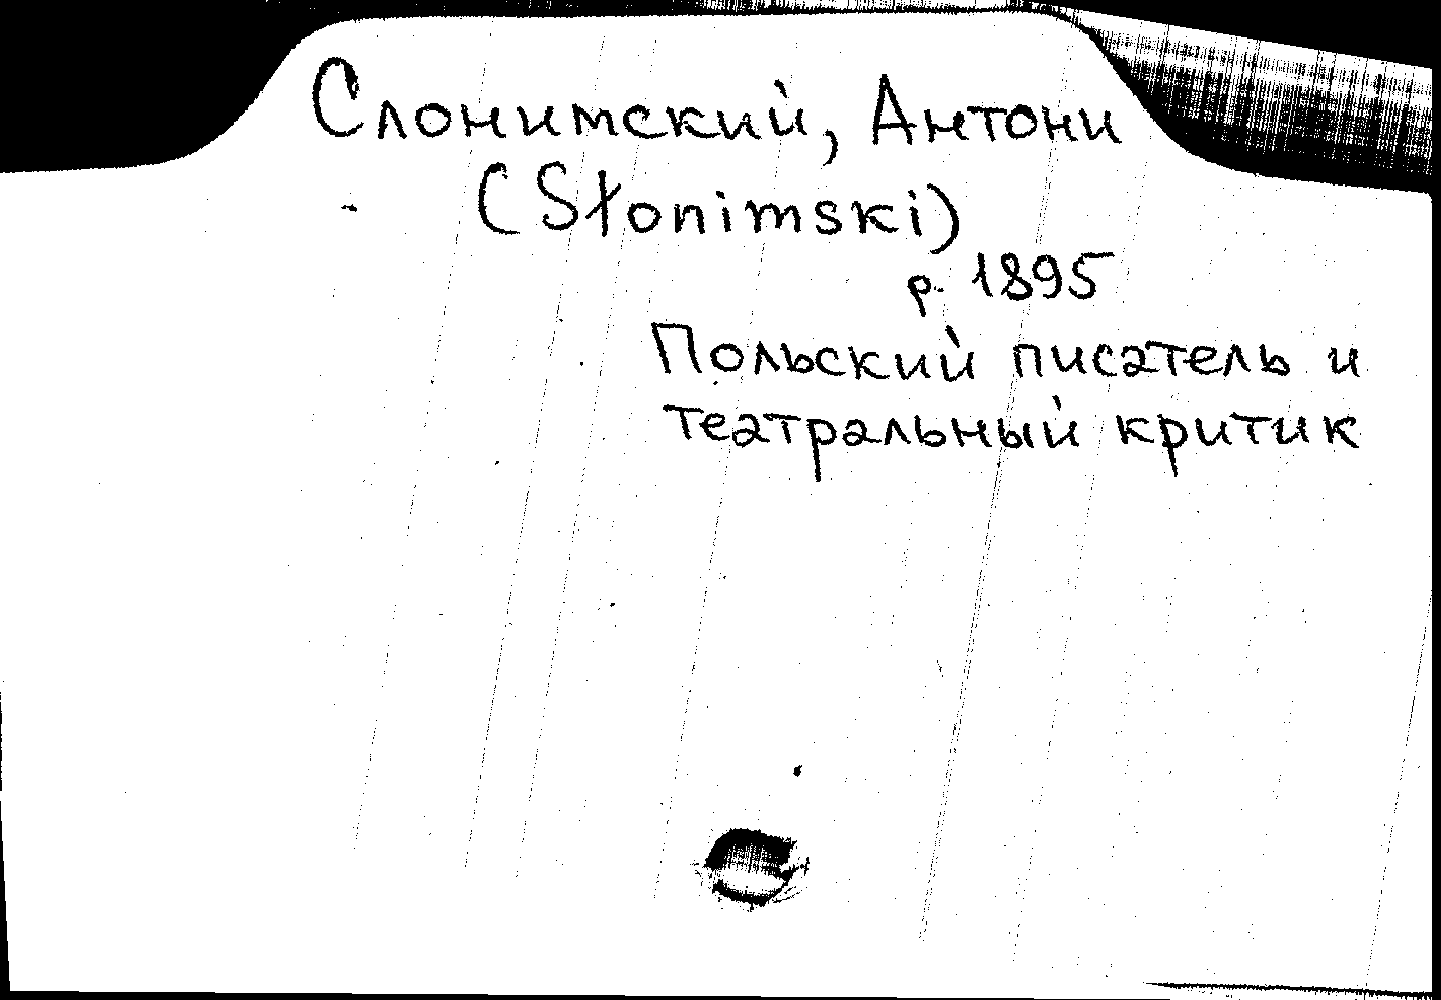 Слонимский, Антони
(Słonimski)
р. 1895
Польский писатель и
театральный критик